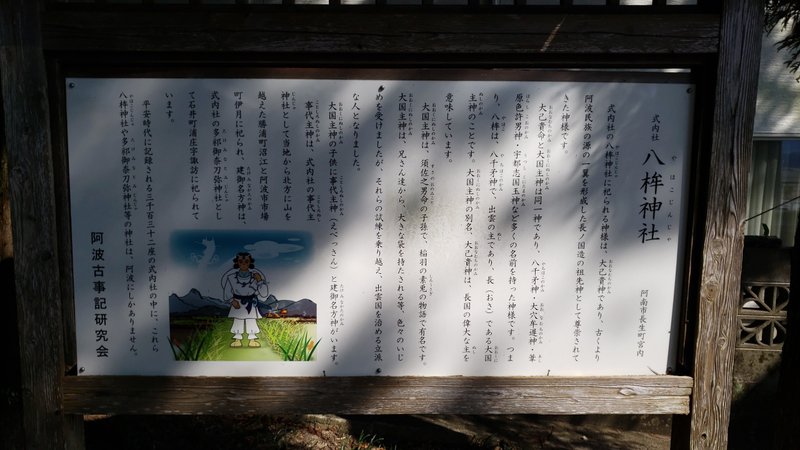 式内社 八桙神社
阿南市長生町宮内
式内社の八桙神社に祀られる神様は、大己貴命であり、古くより
阿波民族の源の一翼を形成した長ノ国造の祖先神として尊崇されて
きた神様です。
大己貴命と大国主神は同一神であり、八千矛神、大穴牟遅神、葦
原色許男神・宇都志国玉神など多くの名前を持った神様です。つま
り、八桙は、八千矛神で、出雲の主であり、長(おさ)である大国
主神のことです。大国主神の別名、大己貴神は、長国の偉大な主を
意味しています。
大国主神は、須佐之男命の子孫で、稲羽の素兎の物語で有名です。
大国主神は、兄さん達から、大きな袋を持たされる等、色々のいじ
めを受けましたが、それらの試練を乗り越え、出雲国を治める立派
な人となりました。
大国主神の子供に事代主神(えべっさん)と建御名方神がいます。
事代主神は、式内社の事代主
神社として当地から北方に山を
越えた勝浦町沼江と阿波市市場
町伊月に祀られ、建御名方神は、
式内社の多祁御奈刀弥神社とし
て石井町浦庄字諏訪に祀られて
います。
平安時代に記録される三千百三十二座の式内社の中に、これら
八桙神社や多祁御奈刀弥神社等の神社は、阿波にしかありません。
阿波古事記研究会